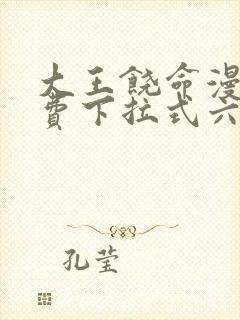 大王饶命漫
费下拉式六
孔莹